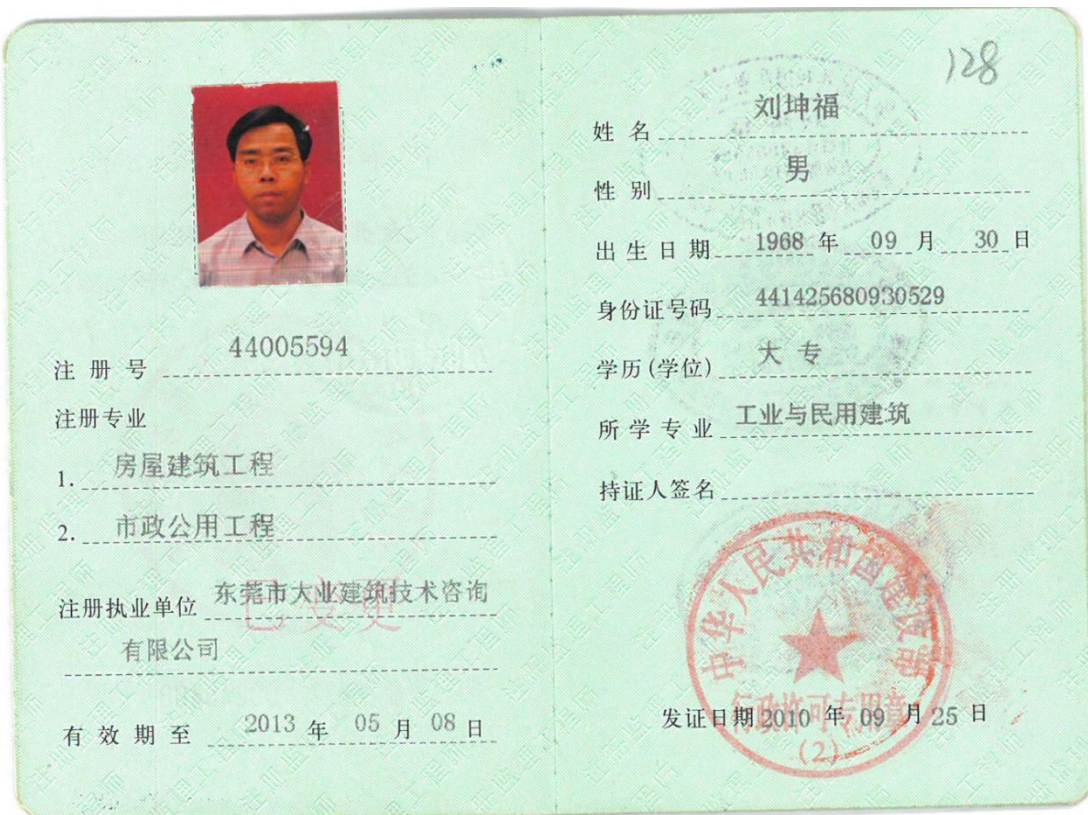 注 册 号 44005594
注册专业
1. 房屋建筑工程
2. 市政公用工程
注册执业单位 东莞市大业建筑技术咨询
有限公司
已变更
有 效 期 至 2013 年 05 月 08 日
128
姓 名 刘坤福
性 别 男
出 生 日 期 1968 年 09 月 30 日
身份证号码 441425680930529
学历(学位) 大 专
所 学 专 业 工业与民用建筑
持证人签名
中华人民共和国建设部
行政许可专用章
(2)
发证日期 2010 年 09 月 25 日